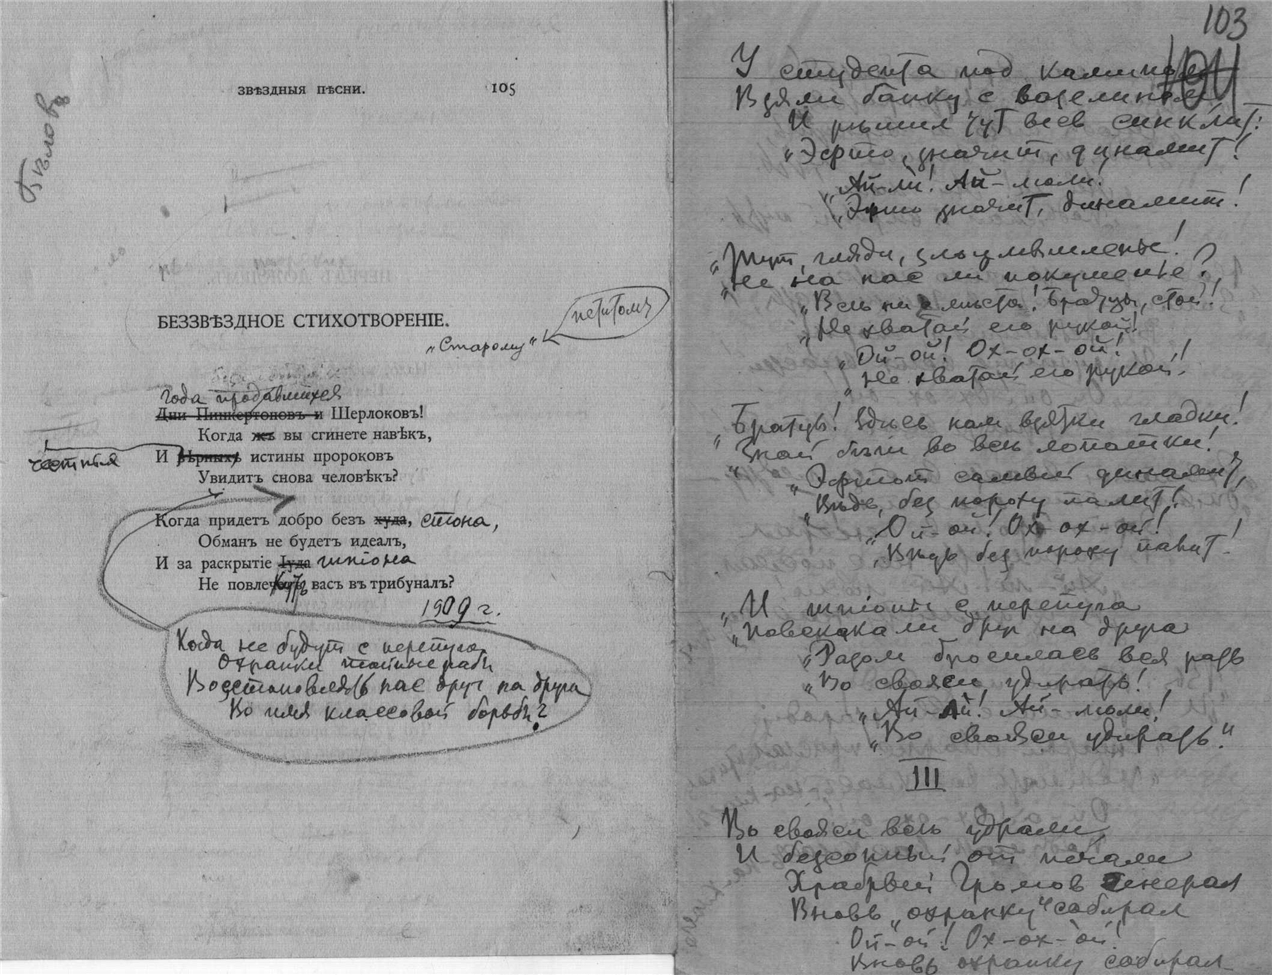 ЗВѢЗДНЫЯ ПѢСНИ. 105
Бѣловъ
БЕЗЗВѢЗДНОЕ СТИХОТВОРЕНІЕ.
„Старому“
петитомъ
Года продавшихся
Дни Пинкертоновъ и Шерлоковъ!
Когда жъ вы сгинете навѣкъ,
И вѣрныхъ истины пророковъ
честныя
Увидитъ снова человѣкъ?
Когда придетъ добро безъ худа, стона,
Обманъ не будетъ идеалъ,
И за раскрытіе Іуда шпіона
Не повлечутъ васъ въ трибуналъ?
1909 г.
Когда не будут с перепуга
Охранки тайные рабы
Возстановлять нас друг на друга
Во имя классовой борьбы?
103
104
У студента под калиной
Взяли банку с вазелином
И рѣшил тут весь синклит:
„Эфто, значит, динамит!
„Ай-ли! Ай-люли!
„Эфто значит, динамит!
„Тут, гляди, злоумышленье!
„Не на нас ли покушенье?
„Всѣ на мѣста! Братцы, стой!
„Не хватай его рукой!
„Ой-ой! Ох-ох-ой!
„Не хватай его рукой!
„Братцы! Здѣсь нам взятки гладки!
„Знай бѣги во всѣ лопатки!
„Эфтот самый динамит,
„Вѣдь, без пороху палит!
„Ой-ой! Ох-ох-ой!
„Вѣдь без пороху палит!
„И шпіоны с перепуга
„Повскакали друг на друга
„Разом бросилась вся рать
„Во свояси удирать!
„Ай-ли! Ай-люли!
„Во свояси удирать.“
III
Во свояси всѣ удрали,
И безсонный от печали
Храбрый Громов генерал
Вновь „охранку“ собирал
Ой-ой! Ох-ох-ой!
Вновь охранку собирал